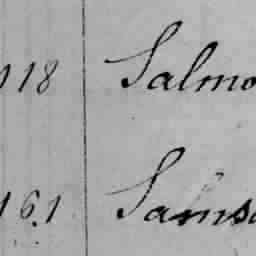 118 Salmo
161 Samso